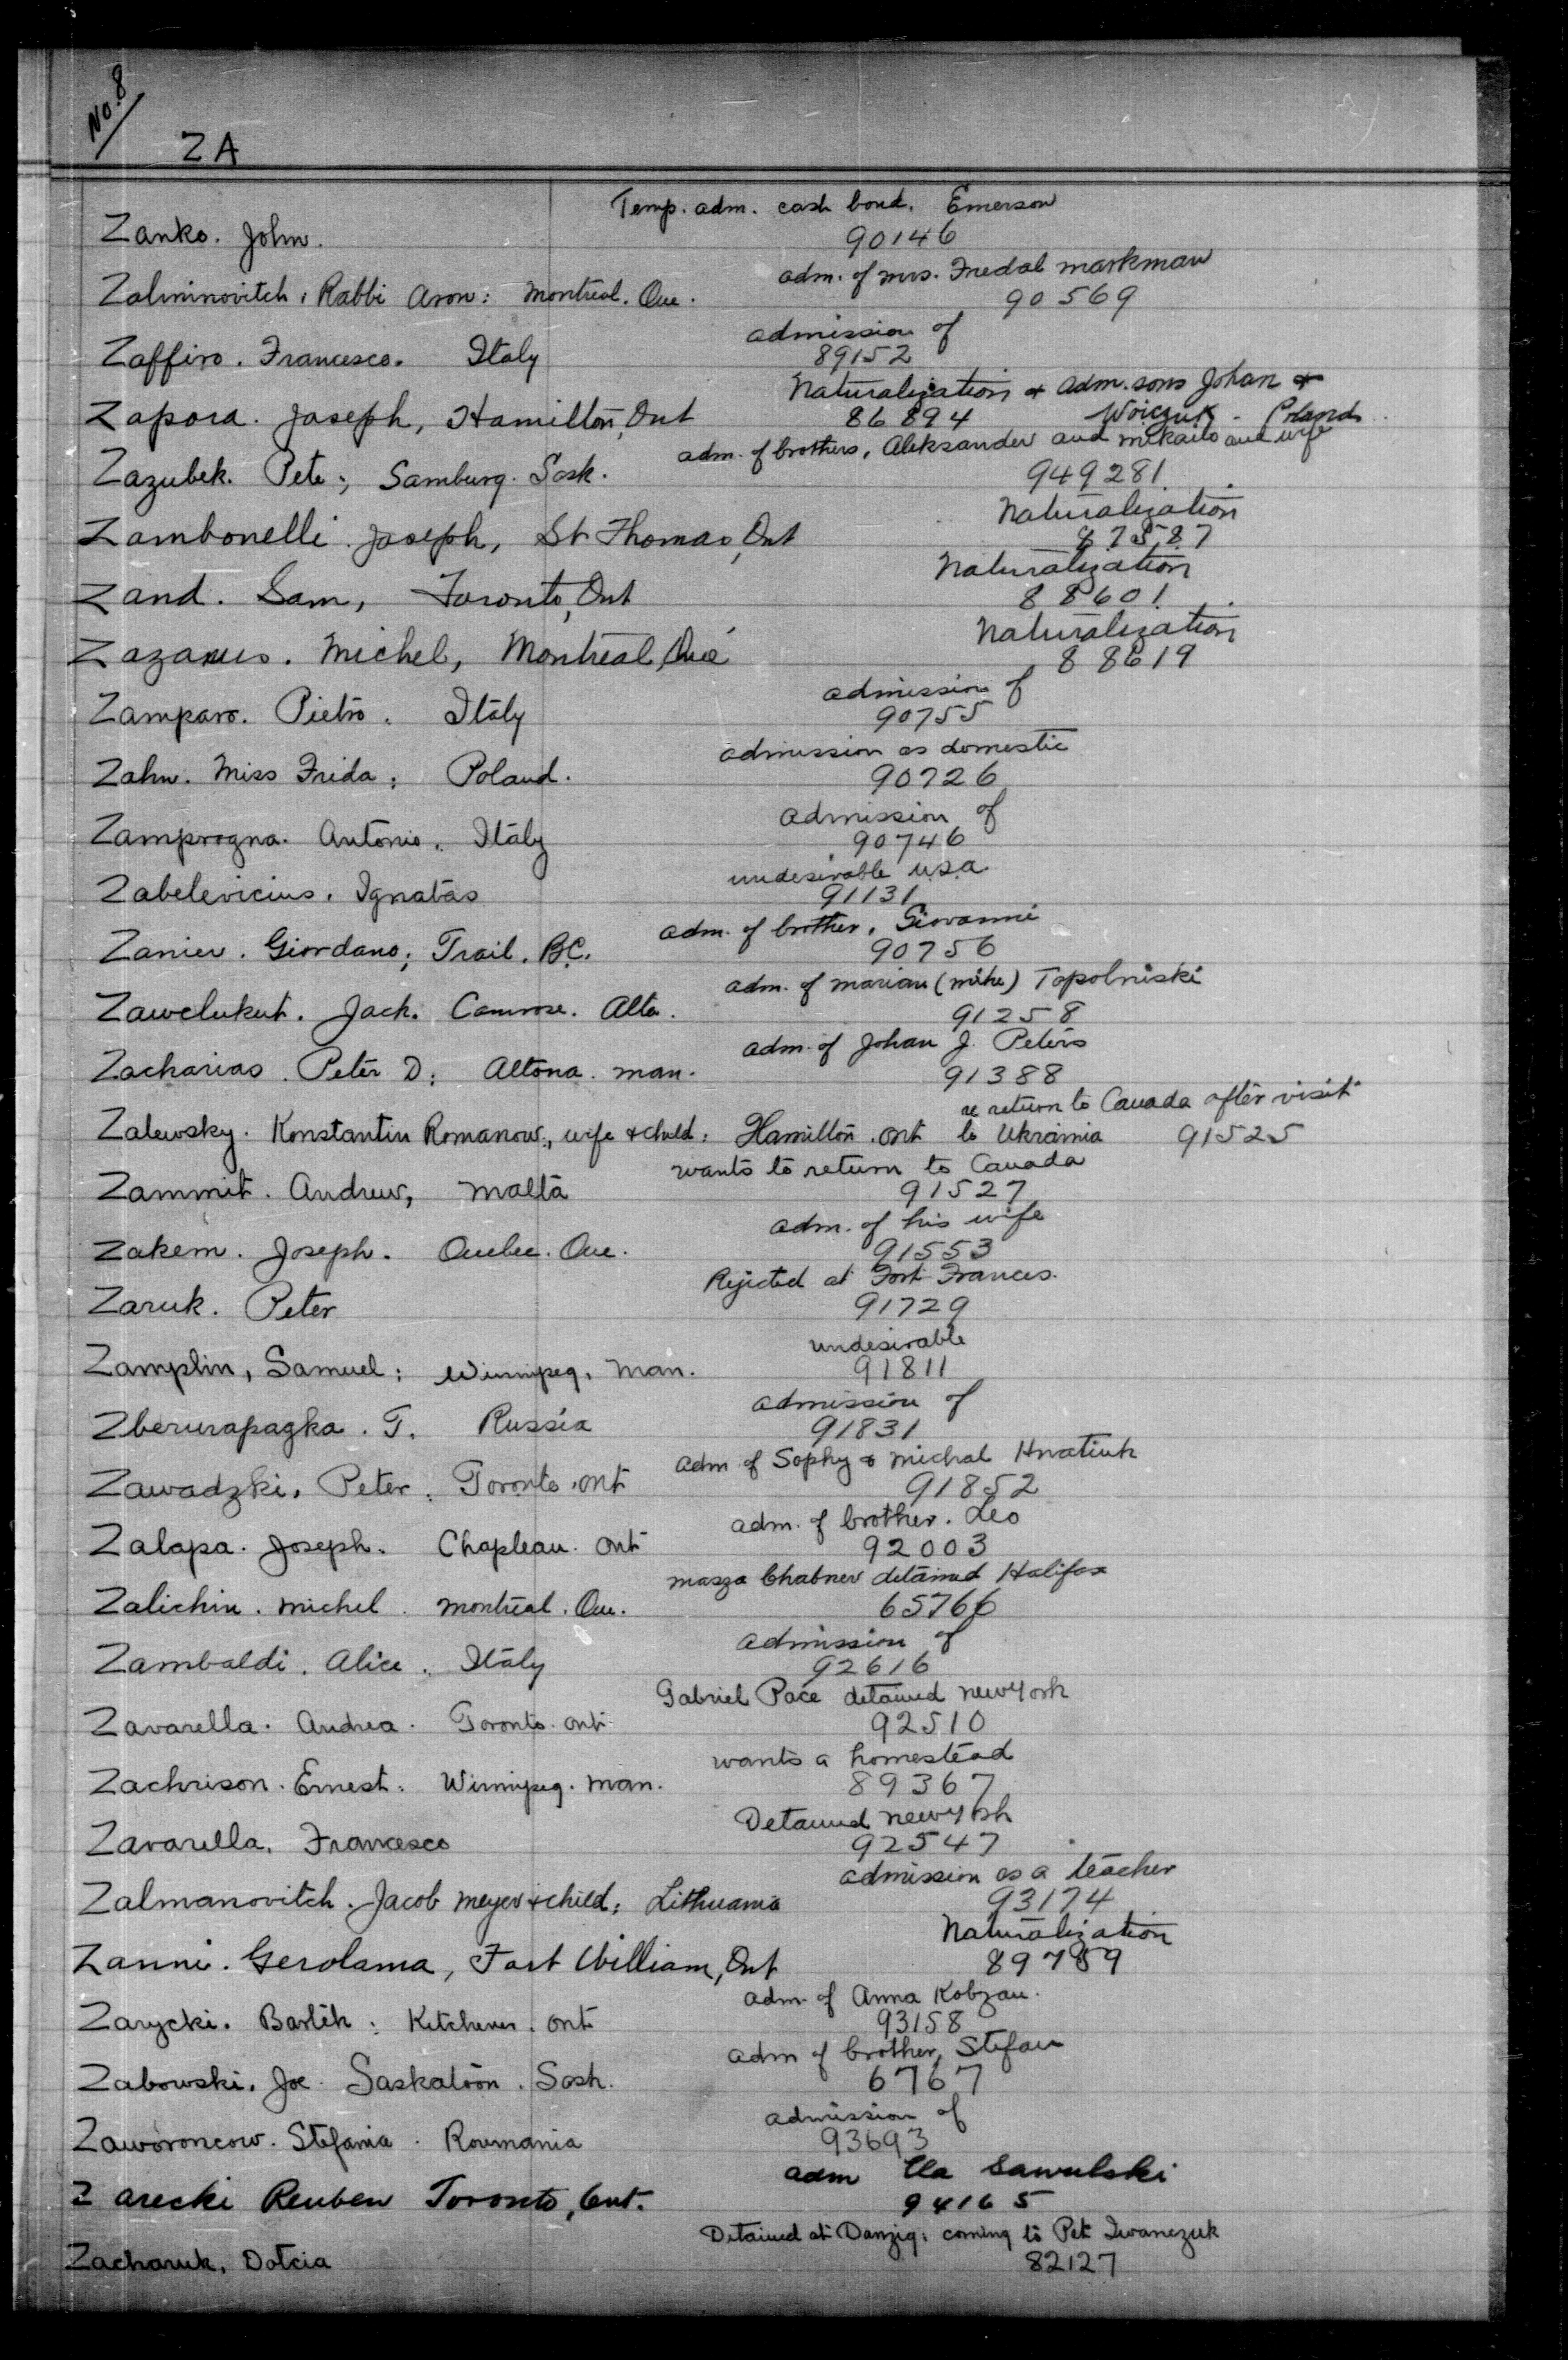 No. 8
ZA
Temp. adm. cash bond. Emerson
Zanko. John. 90146
adm. of mrs. Fredal markman
Zalmnovitch, Rabbi Aron: Montreal. Que. 90569
admission of
Zaffiro. Francesco. Italy 89152
Naturalization & adm. sons Johan &
Zapora. Joseph, Hamilton, Ont 86894 Woiczuk - Poland
adm. of brothers, Aleksander and mikailo and wife
Zazubek. Pete; Samburg. Sask. 949281
Naturalization
Zambonelli. Joseph, St Thomas, Ont 87587
Naturalization
Zand. Sam, Toronto, Ont 88601
Naturalization
Michel, Montreal, Que 88619
admission of
Zamparo. Pietro. Italy 90755
admission as domestic
Zahn. Miss Frida; Poland. 90726
admission of
Zamprogna. Antonio. Italy 90746
undesirable u.s.a.
Zabelevicius. Ignatas 91131
adm. of brother, Giovanni
Zanier. Giordano; Trail. B.C. 90756
adm. of marian (mike) Topolniski
Zawelukut. Jack. Camrose. Alta. 91258
adm. of Johan J. Peters
Zacharias. Peter D: Altona. man. 91388
re return to Canada after visit
Zalewsky. Konstantin Romanow:, wife & child: Hamilton. Ont to Ukrainia 91525
wants to return to Canada
Zammit. Andrew, Malta 91527
adm. of his wife
Zakem. Joseph. Quebec. Que. 91553
Rejected at Fort Frances.
Zaruk. Peter 91729
undesirable
Zamplin, Samuel: Winnipeg, Man. 91811
admission of
Zberurapagka. T. Russia 91831
adm of Sophy & Michal Hnatiuk
Zawadzki, Peter: Toronto. Ont 91852
adm. of brother. Leo
Zalapa. Joseph. Chapleau. Ont 92003
masza Chabner detained Halifax
Zalichin. Michel. Montreal. Que. 65766
admission of
Zambaldi. Alice. Italy 92616
Gabriel Pace detained new york
Zavarella. Andrea. Toronto. Ont 92510
wants a homestead
Zachrison. Ernest: Winnipeg. Man. 89367
Detained new york
Zavarella. Francesco 92547
admission as a teacher
Zalmanovitch. Jacob Meyer & child: Lithuania 93174
Naturalization
Zanni. Gerolama, Fort William, Ont 89789
adm. of Anna Kobzan.
Zarycki. Bartek: Kitchener. Ont 93158
adm of brother, Stefan
Zabowski. Joe. Saskatoon. Sask. 6767
admission of
Zaworoncow. Stefania. Roumania 93693
adm Ila Sawulski
Zarecki Reuben Toronto, Ont. 94165
Detained at Danzig: coming to Pet Iwanczuk
Zacharuk, Dotcia 82127